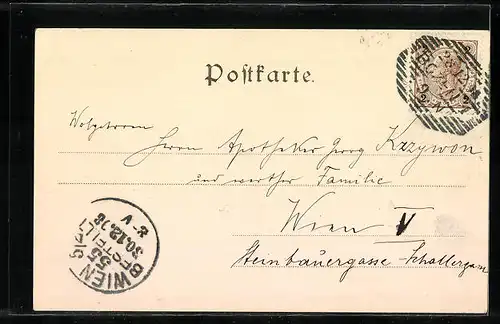 Postkarte.
Wolgeboren
Herrn Apotheker Georg Krzywon
und werther Familie
Wien V
Steinbauergasse-Schallergasse
WIEN 5/5
55
BESTELLT
30.12.98
8-V